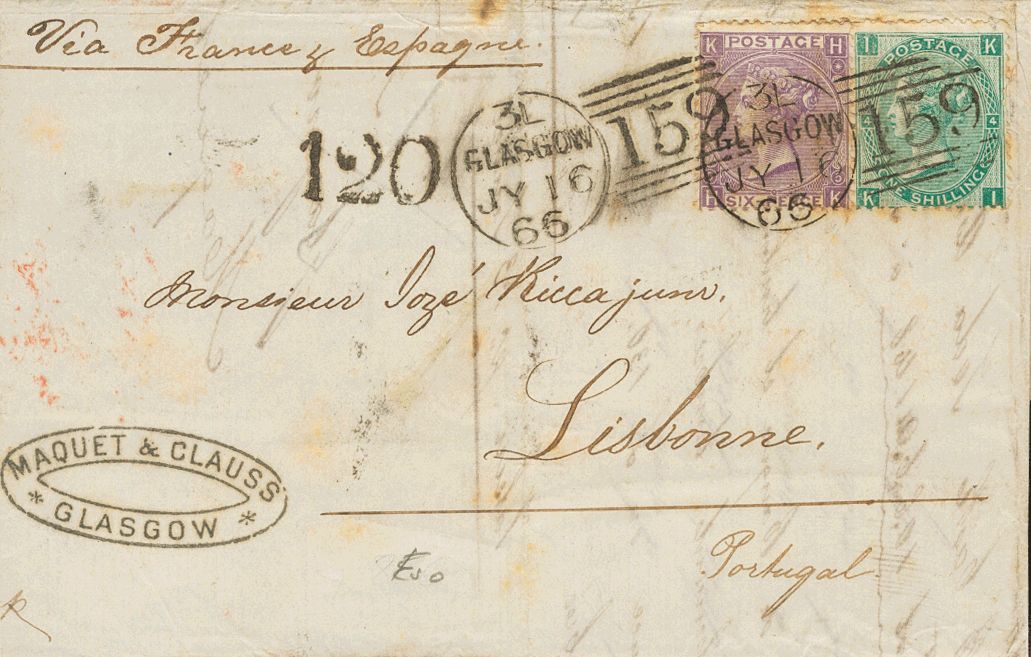 Via France y Espagne.
K POSTAGE H
SIX PENCE
H K
I POSTAGE K
4 4
K ONE SHILLING I
3L
GLASGOW
JY 16
66
159
3L
GLASGOW
JY 16
66
159
120
Monsieur Jozé Ricca junr.
Lisbonne.
Portugal.
MAQUET & CLAUSS
* GLASGOW *